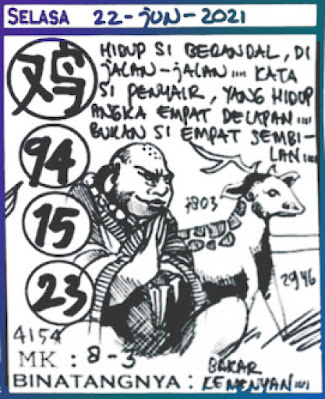 SELASA 22-JUN-2021
HIDUP SI BERANDAL, DI
JALAN-JALAN.... KATA
SI PENYAIR, YANG HIDUP
ANGKA EMPAT DELAPAN....
BUKAN SI EMPAT SEMBI-
LAN....
鸡
94
15
23
7803
2946
4154
MK : 8-3
BAKAR
BINATANGNYA : KEMENYAN....